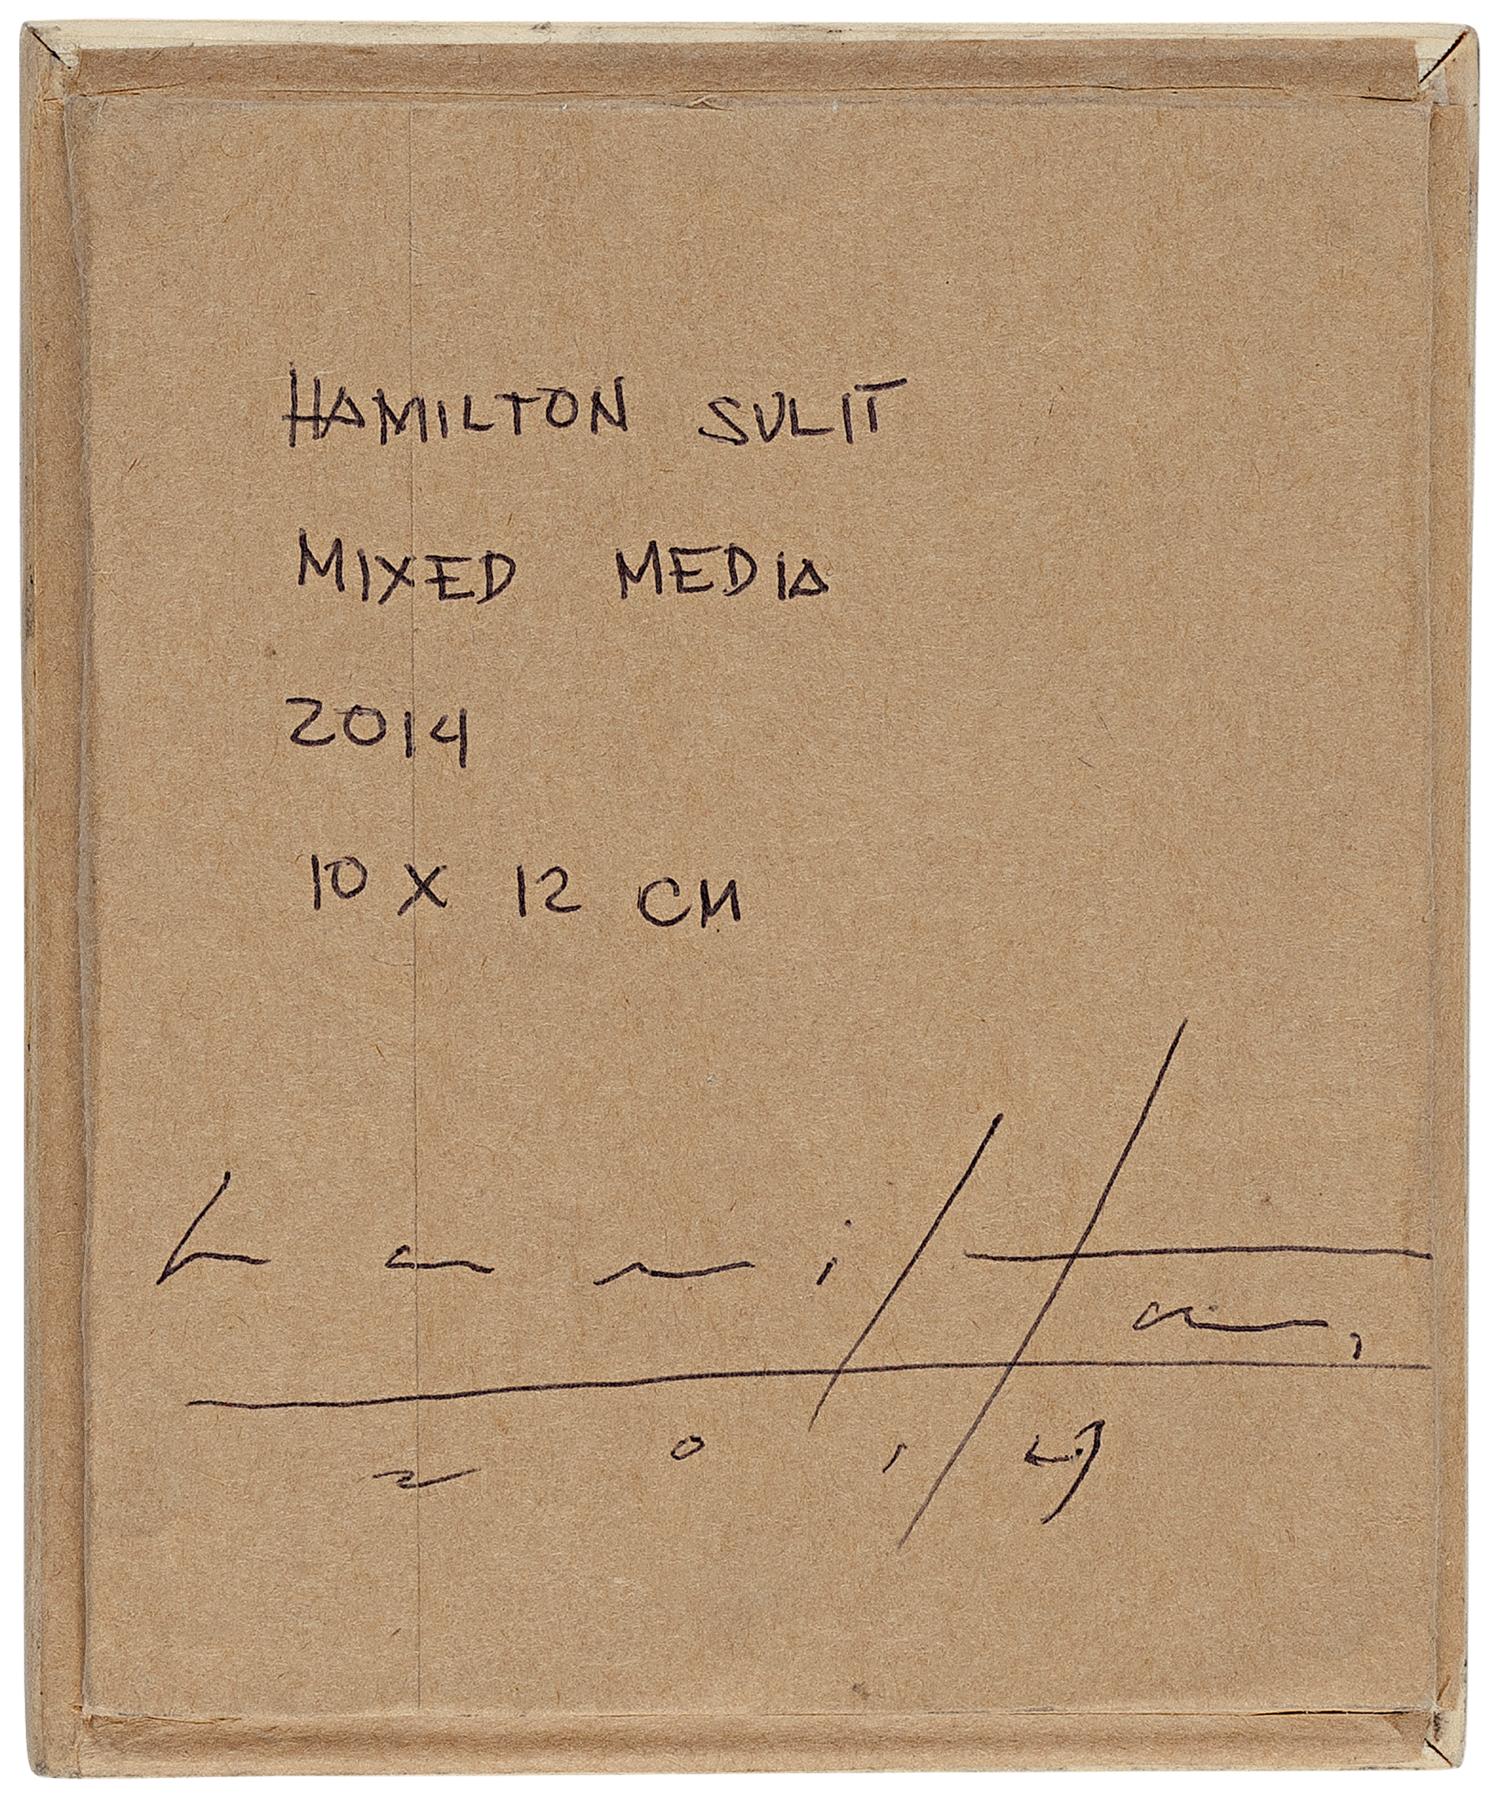 HAMILTON SULIT
MIXED MEDIA
2014
10 X 12 CM
hamilton,
2014